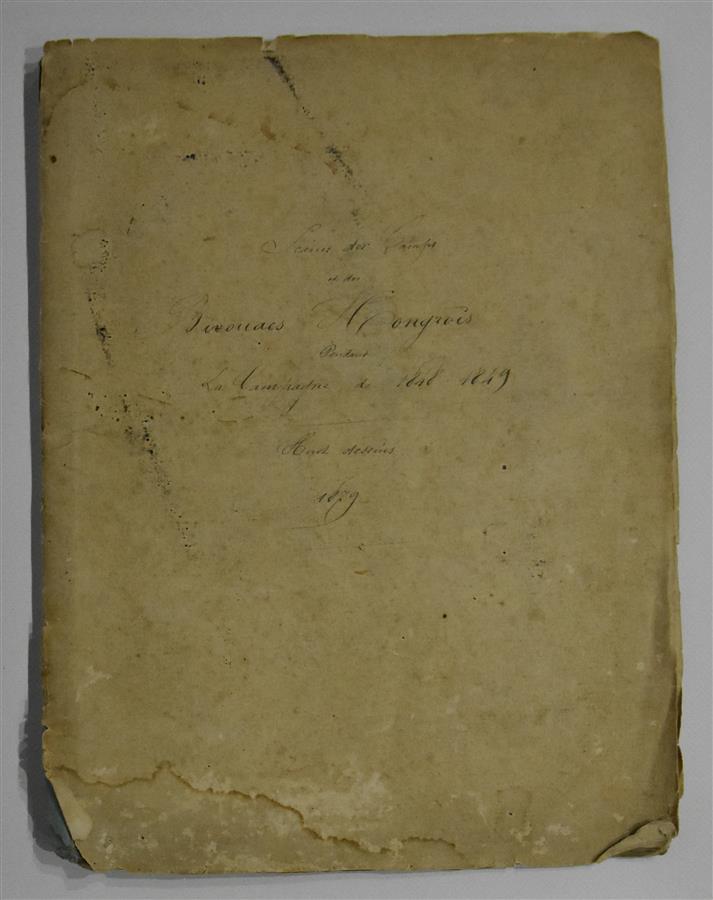 Scènes des Camps
et des
Bivouacs Hongrois
Pendant
La Campagne de 1848-1849
Huit dessins
1879